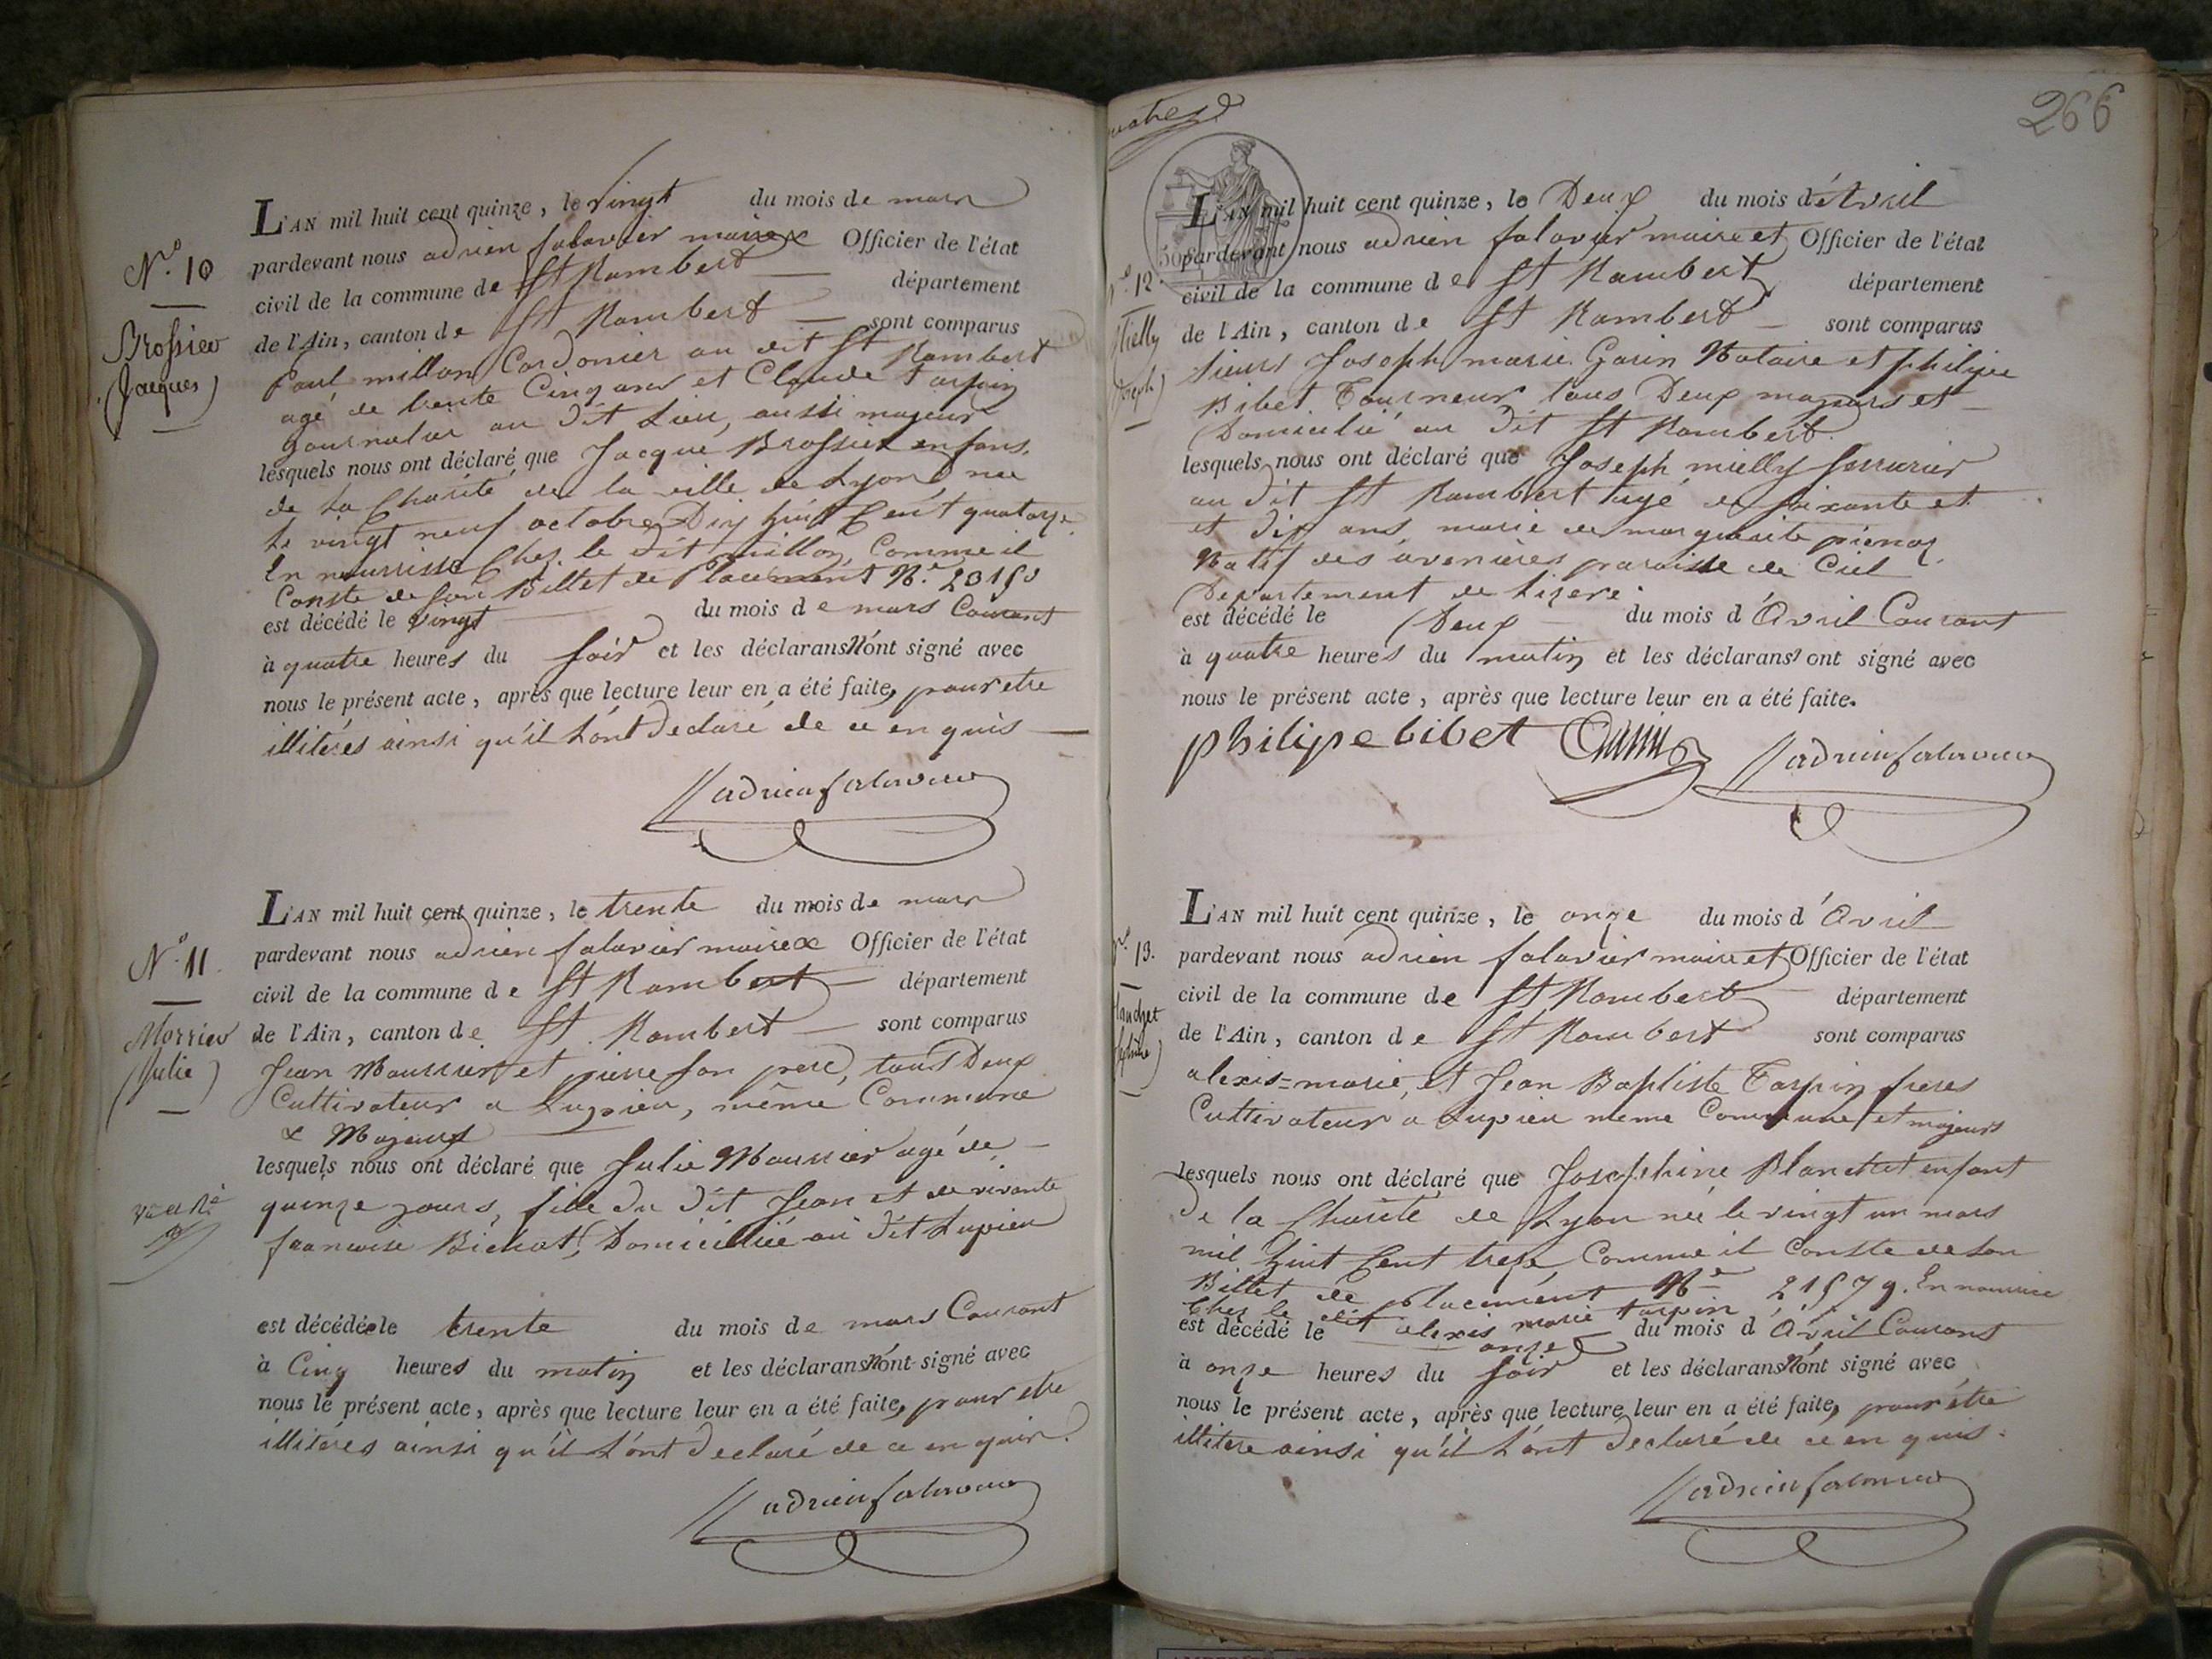 N.º 10
Brossier
(Jacques)
L'AN mil huit cent quinze, le vingt du mois de mars
pardevant nous adrien falavier maire & Officier de l'état
civil de la commune de St Rambert département
de l'Ain, canton de St Rambert sont comparus
Paul millon Cordonier au dit St Rambert
agé de trente Cinq ans et Claude tarpin
Journalier au dit Lieu, aussi majeur
lesquels nous ont déclaré que Jacque Brossier enfans
de La Charité de la ville de Lyon née
le vingt neuf octobre Dix huit Cent quatorze
En nourrisse Chez le dit millon, Comme il
Conste de son Billet de Placement N.º
est décédé le vingt du mois de mars Courant
à quatre heures du soir et les déclarans N'ont signé avec
nous le présent acte, après que lecture leur en a été faite, pour etre
illitérés ainsi qu'il L'ont Declaré de ce en quis
adrien falavier
N.º 11
Morrier
(Julie)
L'AN mil huit cent quinze, le trente du mois de mars
pardevant nous adrien falavier maire & Officier de l'état
civil de la commune de St Rambert département
de l'Ain, canton de St Rambert sont comparus
Jean Mourrier et pierre son pere, tous Deux
Cultivateur a Lupieu, même Commune
& Majeurs
lesquels nous ont déclaré que Julie Mourrier agé de
quinze jours, fille du dit Jean et de vivante
francoise Bichat, Domiciliée au dit Lupieu
est décédée le trente du mois de mars Courant
à Cinq heures du matin et les déclarans N'ont signé avec
nous le présent acte, après que lecture leur en a été faite, pour etre
illitérés ainsi qu'il L'ont Declaré de ce en quis.
adrien falavier
266
12.
Mielly
Joseph)
L'AN mil huit cent quinze, le Deux du mois d'Avril
pardevant nous adrien falavier maire et Officier de l'état
civil de la commune de St Rambert département
de l'Ain, canton de St Rambert sont comparus
sieurs Joseph marie Garin Notaire et philipe
Bibet Tourneur tous Deux majeurs et
Domicilié au dit St Rambert.
lesquels nous ont déclaré que Joseph mielly serrurier
au dit St Rambert agé de soixante et
et dix ans, marie de marguerite
Natif des avenieres paroisse de Ciel
Departement de Lizere
est décédé le Deux du mois d'Avril Courant
à quatre heures du matin et les déclarans ont signé avec
nous le présent acte, après que lecture leur en a été faite.
philipe bibet Garin adrien falavier
13.
L'AN mil huit cent quinze, le onze du mois d'Avril
pardevant nous adrien falavier maire et Officier de l'état
civil de la commune de St Rambert département
de l'Ain, canton de St Rambert sont comparus
alexis=marie, et Jean Baptiste Tarpin freres
Cultivateur a Lupieu meme Commune et majeurs
lesquels nous ont déclaré que Josephine Blanchet enfant
De la Charité de Lyon née le vingt un mars
mil huit Cent treze Comme il Conste de son
Billet de placement N.º 21579. En nourrice
Chez le dit alexis marie tarpin
est décédé le onze du mois d'Avril Courant
à onze heures du soir et les déclarans N'ont signé avec
nous le présent acte, après que lecture leur en a été faite, pour être
illitere ainsi qu'il L'ont Declaré de ce en quis.
adrien falavier